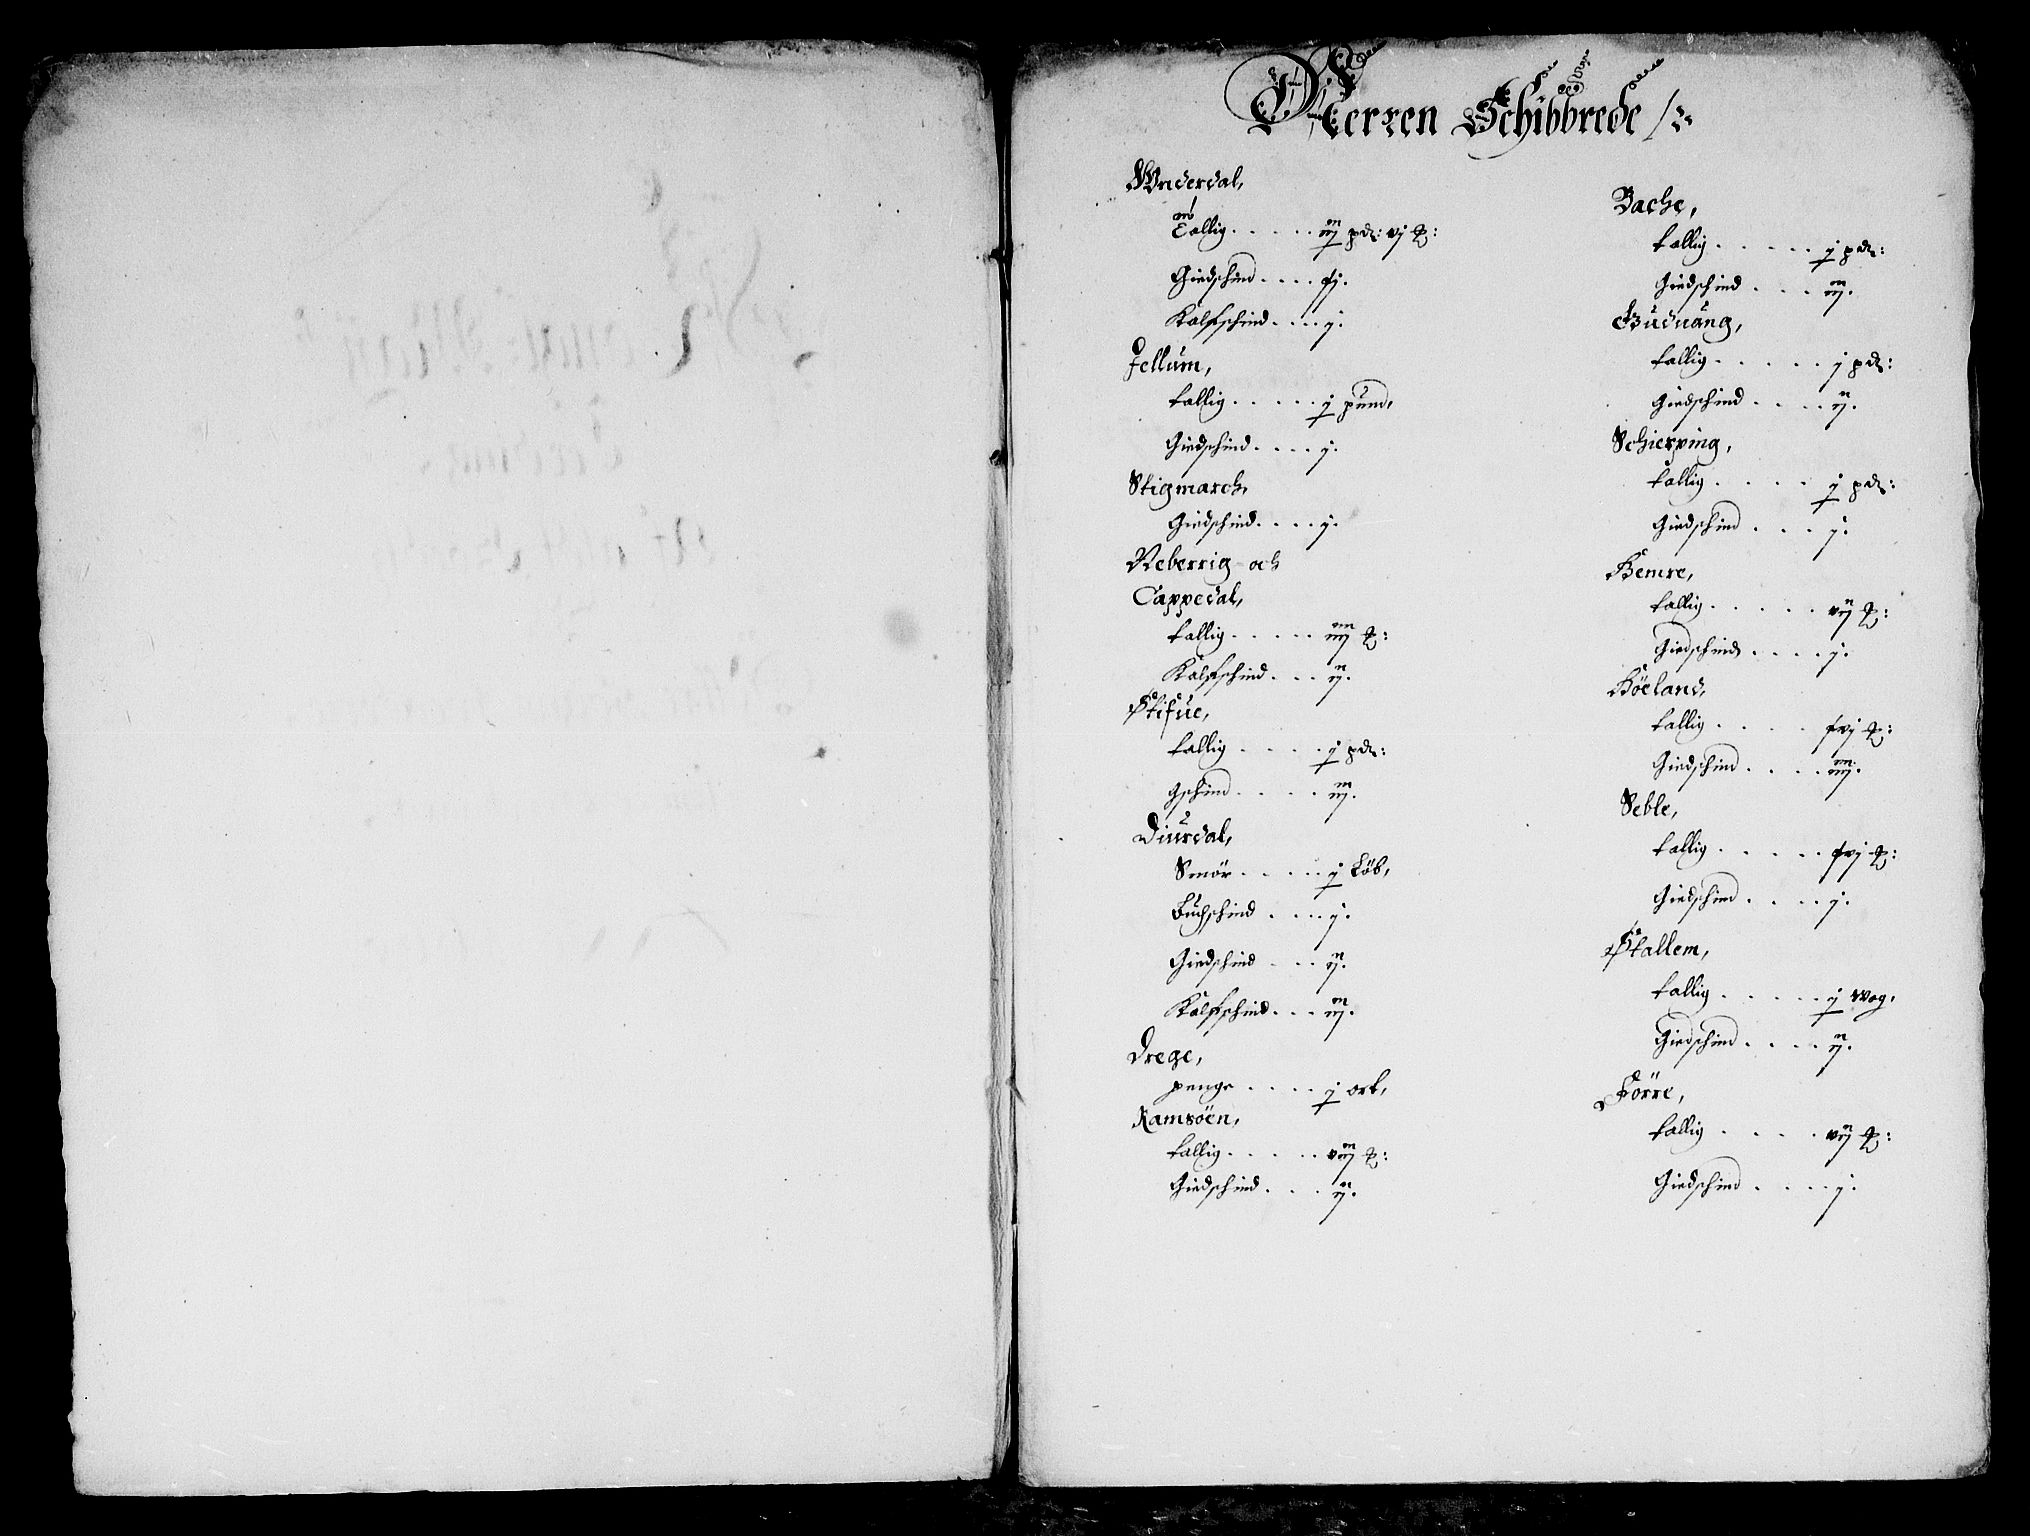 Herren Schibbrede
Wnderdal,
Tallig . . . . . iij pd: vj
Giedschind . . . .
Kalfschind . . . . j.
Jellum,
tallig . . . . . j pund,
Giedschind . . . . j.
Stigmarch,
Giedschind . . . . j.
Neberrig och
Cappedal,
tallig . . . . . iiij
Kalfschind . . . ij.
Stifue,
tallig . . . . . j pd:
gschind . . . . . iij.
Diurdal,
Smör . . . . . j Löb,
Buchschind . . . . j.
Giedschind . . . ij.
Kalfschind . . . iij.
Drege,
penge . . . . j ort,
Ramsöen,
tallig . . . . . viij
Giedschind . . . ij.
Bache,
tallig . . . . . j pd:
Giedschind . . . iij.
Buduang,
tallig . . . . . j pd:
Giedschind . . . . ij.
Schierping,
tallig . . . . j pd:
Giedschind . . . j.
Bemre,
tallig . . . . . vij
Giedschind . . . . j.
Höeland,
tallig . . . . .
Giedschind . . . . iiij.
Seble,
tallig . . . . .
Giedschind . . . . j.
Stallem,
tallig . . . . . j wog,
Giedschind . . . . ij.
Förre,
tallig . . . . vij
Giedschind . . . . j.